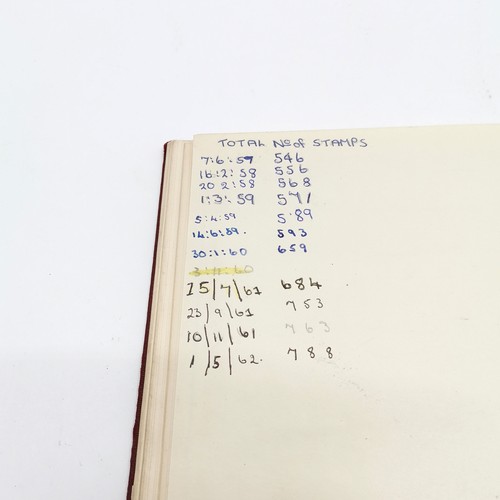 TOTAL Nos of STAMPS
7:6:59 546
16:2:58 556
20 2:58 568
1:3:59 571
5:4:59 589
14:6:89. 593
30:1:60 659
3:11:60
15/7/61 684
23/9/61 753
10/11/61 763
1/5/62. 788